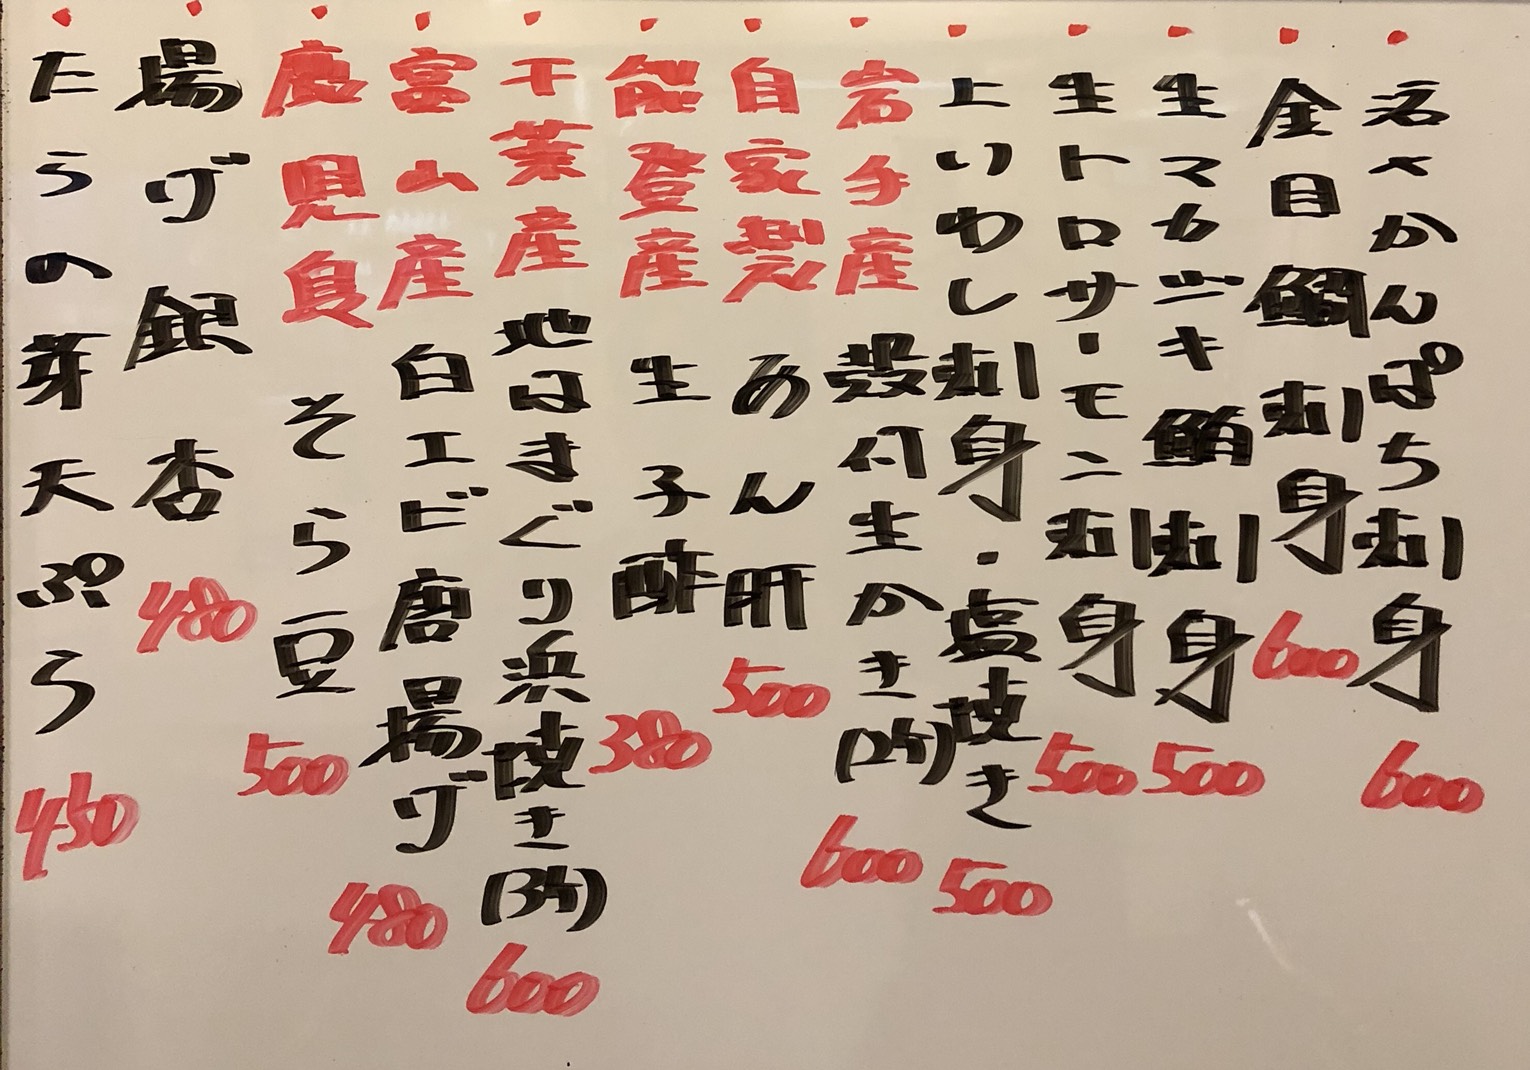 かんぱち刺身 600
金目鯛刺身 600
生マカジキ鮪刺身 500
生トロサーモン刺身 500
上いわし刺身・塩焼き 500
岩手産 殻付生かき(2ケ) 600
自家製 あん肝 500
能登産 生子酢 380
千葉産 地はまぐり浜焼き(3ケ) 600
富山産 白エビ唐揚げ 480
鹿児島 そら豆 500
揚げ銀杏 480
たらの芽天ぷら 450